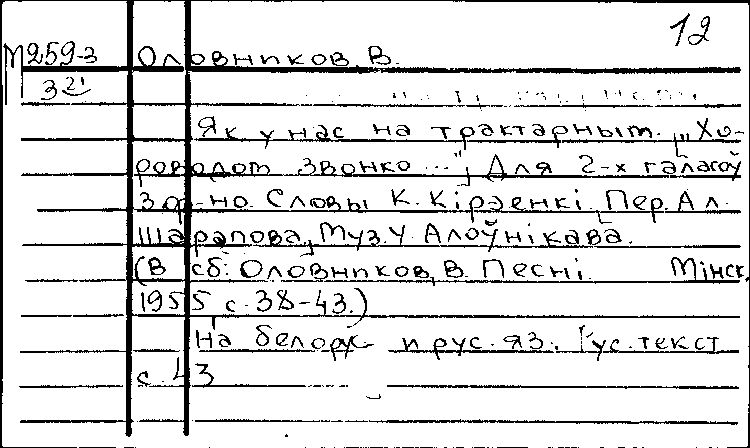 12
М259-3 Оловников, В.
321
Як у нас на трактарным. „Хо-
роводом звонко..." Для 2-х галасоў
з фр-но. Словы К. Кірэенкі, Пер. Ал.
Шарапова, Муз. У. Алоўнікава.
(В сб: Оловников, В. Песні. Мінск,
1955 с. 38-43.)
На белорус. и рус. яз. Рус. текст
с. 43